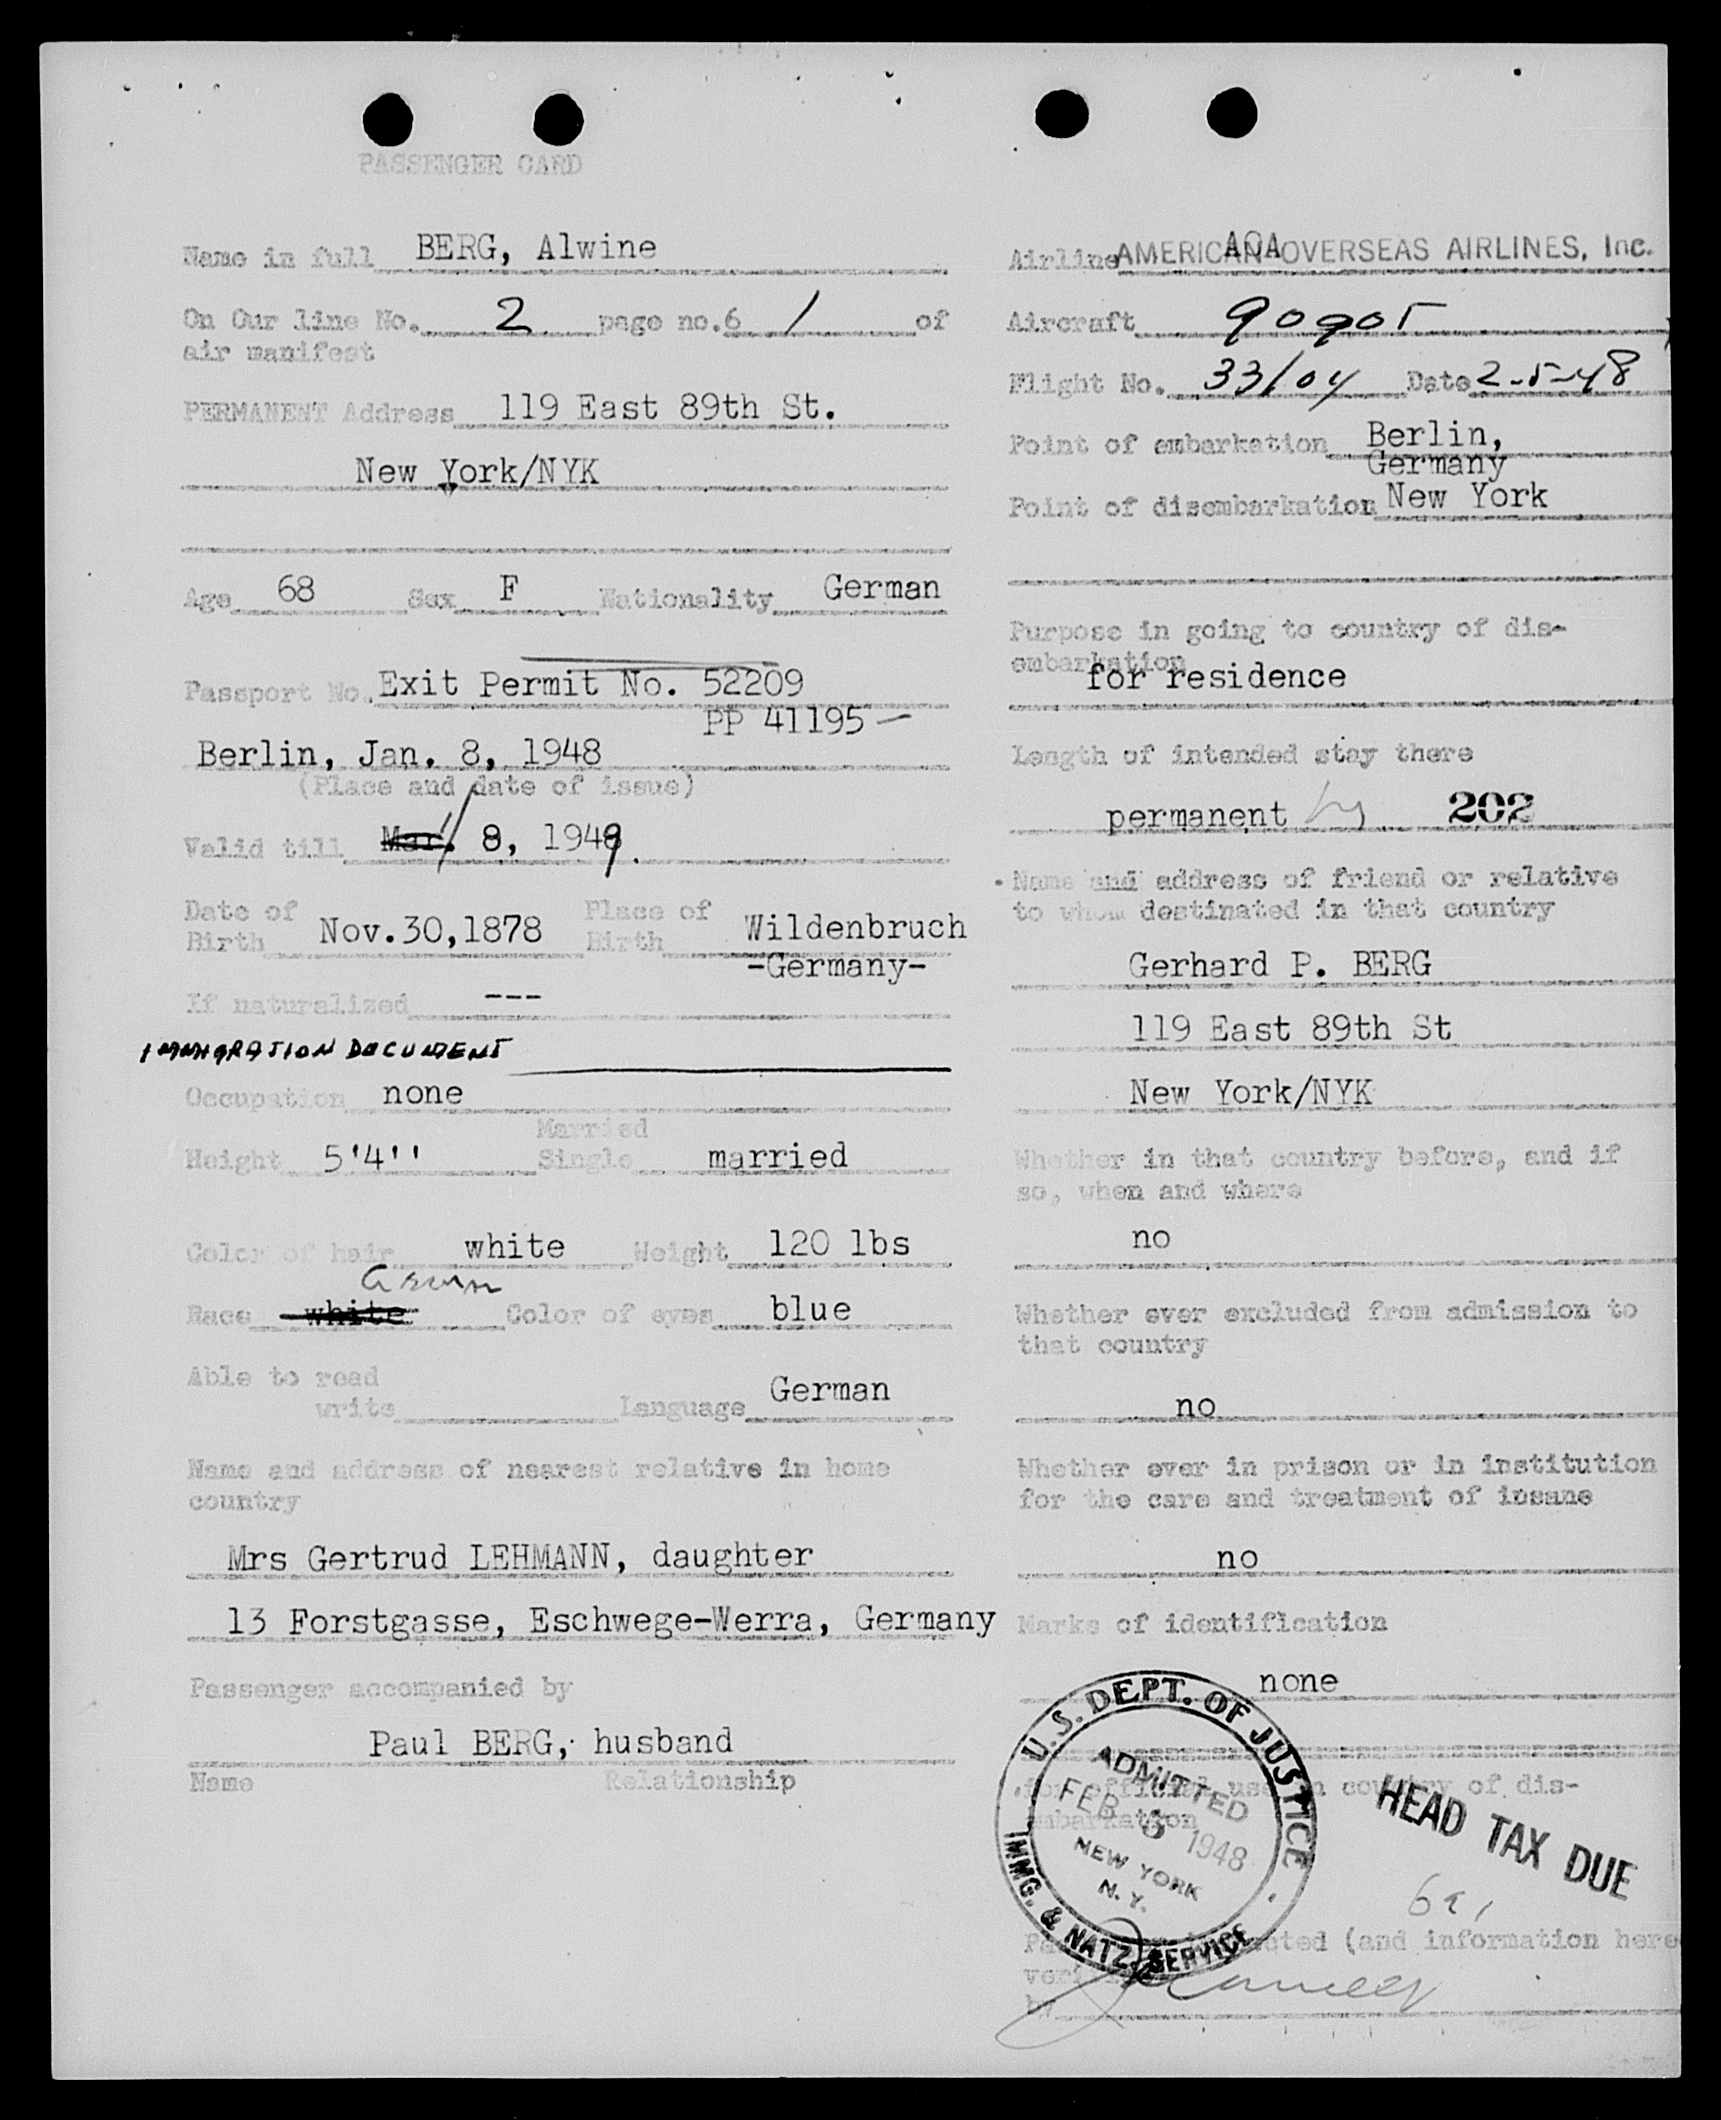 PASSENGER CARD
Name in full BERG, Alwine
On Our line No. 2 page no.6 1 of
air manifest
PERMANENT Address 119 East 89th St.
New York/NYK
Age 68 Sex F Nationality German
Passport No. Exit Permit No. 52209
PP 41195 —
Berlin, Jan. 8, 1948
(Place and date of issue)
Valid till Mar. 8, 1949.
Date of Birth Nov.30,1878 Place of Birth Wildenbruch
-Germany-
If naturalized ---
IMMIGRATION DOCUMENT
Occupation none
Married
Height 5'4'' Single married
Color of hair white Weight 120 lbs
German
Race white Color of eyes blue
Able to read
write Language German
Name and address of nearest relative in home
country
Mrs Gertrud LEHMANN, daughter
13 Forstgasse, Eschwege-Werra, Germany
Passenger accompanied by
Paul BERG, husband
Name Relationship
Airline AMERICAN OVERSEAS AIRLINES, Inc.
AOA
Aircraft 90905
Flight No. 33/04 Date 2-5-48
Point of embarkation Berlin,
Germany
Point of disembarkation New York
Purpose in going to country of dis-
embarkation
for residence
Length of intended stay there
permanent 202
Name and address of friend or relative
to whom destinated in that country
Gerhard P. BERG
119 East 89th St
New York/NYK
Whether in that country before, and if
so, when and where
no
Whether ever excluded from admission to
that country
no
Whether ever in prison or in institution
for the care and treatment of insane
no
Marks of identification
none
for official use in country of dis-
embarkation
U.S. DEPT. OF JUSTICE
ADMITTED
FEB 5 1948
NEW YORK
N. Y.
IMMG. & NATZ. SERVICE
HEAD TAX DUE
(and information here
by